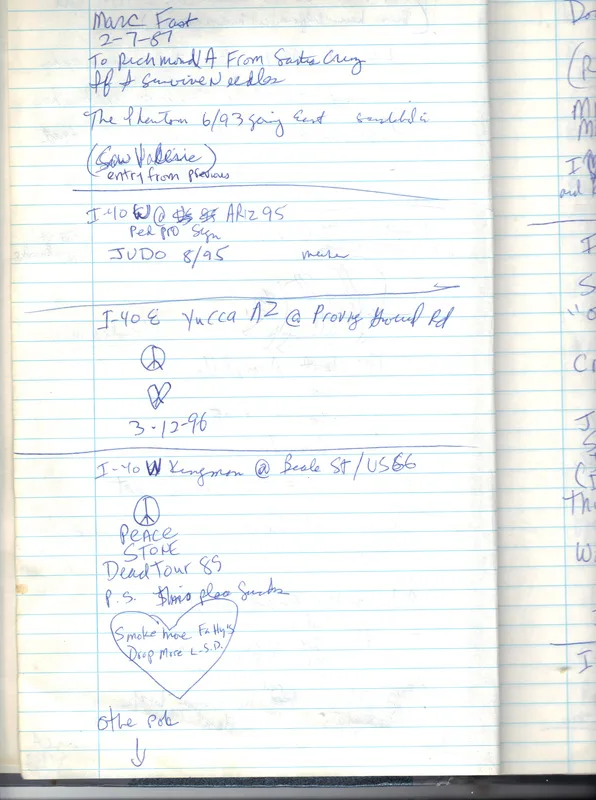 Marc Fast
2-7-87
To Richmond VA From Santa Cruz
If I Survive Needles
The Phantom 6/93 going East
(Saw Valerie)
entry from previous
I-40 W @ ARIZ 95
Ped Pro Sign
JUDO 8/95
I-40 E Yucca AZ @ Proving Ground Rd
3-12-96
I-40 W Kingman @ Beale St/US66
PEACE
STONE
Dead Tour 89
P.S. This place Sucks
Smoke more Fatty's
Drop More L.S.D.
othe pole
Do
(R
M
M
I
and
I
S
"o
C
J
S
Th
W
I